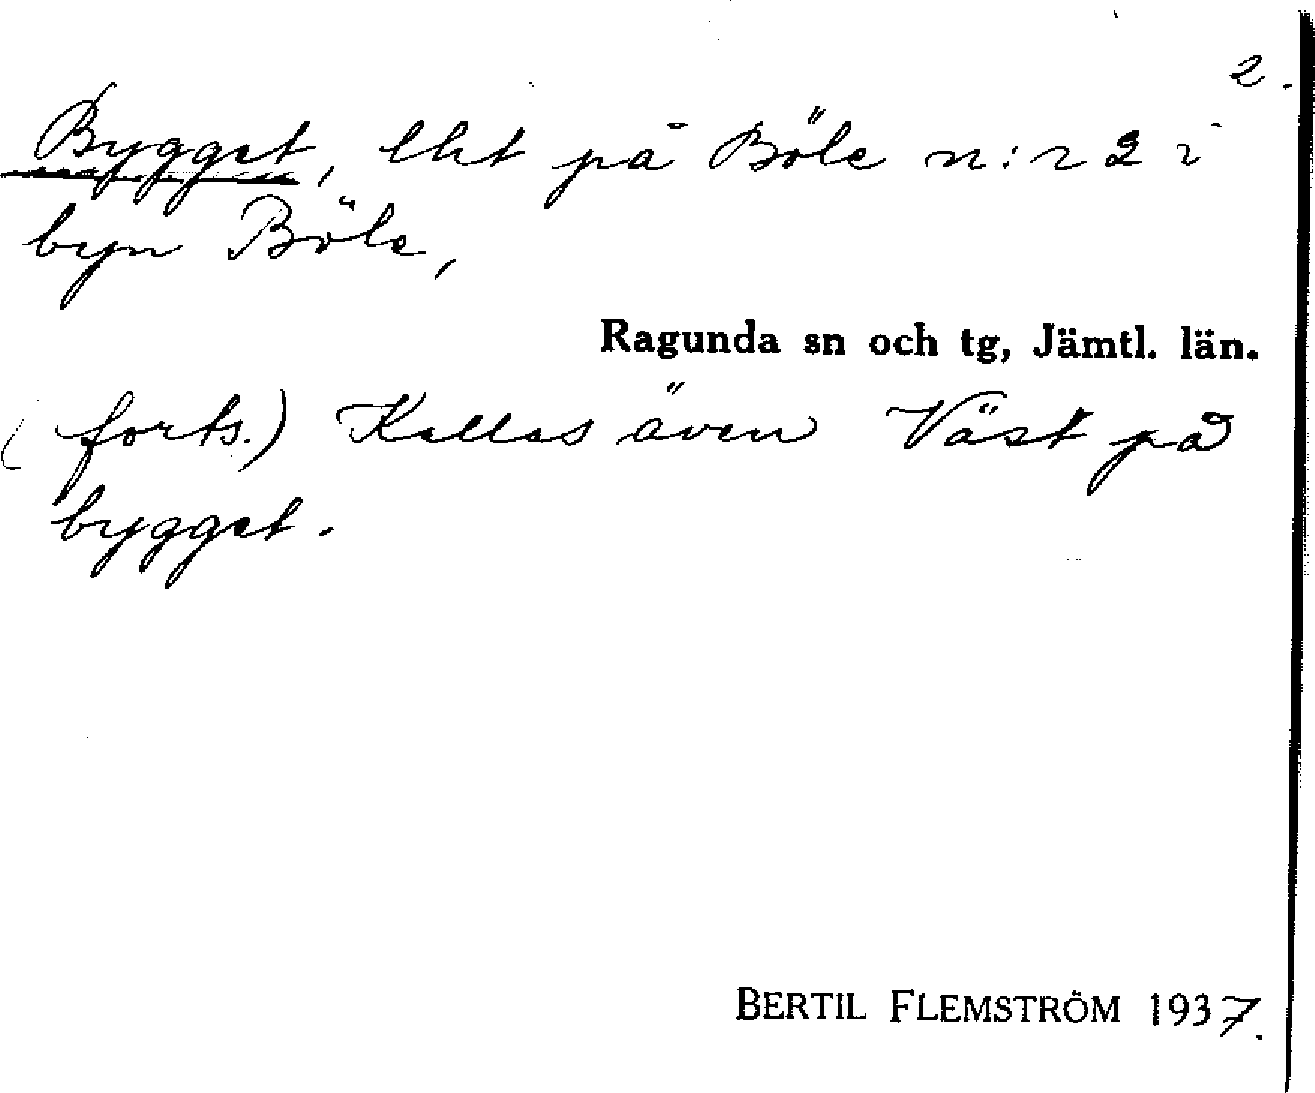 2.
Bygget, lht på Böle n:r 2 i
byn Böle,
Ragunda sn och tg, Jämtl. län.
(forts.) Kallas även Väst på
bygget.
BERTIL FLEMSTRÖM 1937.